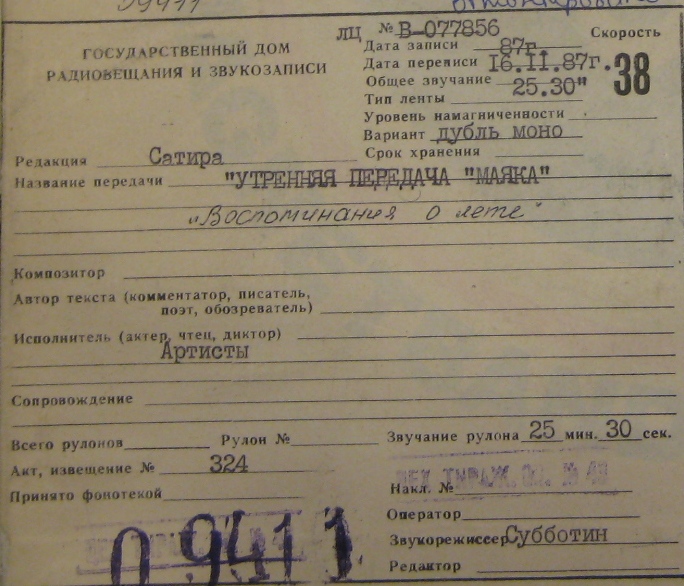 09411
ЛЦ № В-077856
Скорость
38
ГОСУДАРСТВЕННЫЙ ДОМ
РАДИОВЕЩАНИЯ И ЗВУКОЗАПИСИ
Дата записи 87г.
Дата перевиси 16.11.87г.
Общее звучание 25.30"
Тип ленты
Уровень намагниченности
Вариант дубль моно
Срок хранения
Редакция Сатира
Название передачи "УТРЕННЯЯ ПЕРЕДАЧА "МАЯКА"
„Воспоминания о лете"
Композитор
Автор текста (комментатор, писатель,
поэт, обозреватель)
Исполнитель (актер, чтец, диктор)
Артисты
Сопровождение
Всего рулонов Рулон № Звучание рулона 25 мин. 30 сек.
Акт, извещение № 324
Принято фонотекой
Накл. №
Оператор
Звукорежиссер Субботин
Редактор
09411